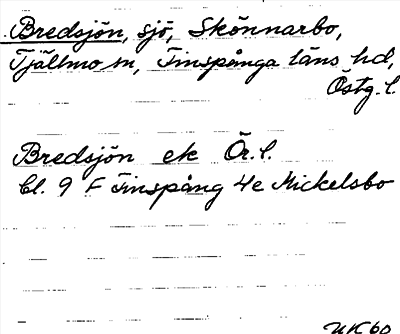 Bredsjön, sjö, Skönnarbo,
Tjällmo sn, Finspånga läns hd,
Östg. l.
Bredsjön ek Ör. l.
Bl. 9 F Finspång 4e Mickelsbo
UK 60